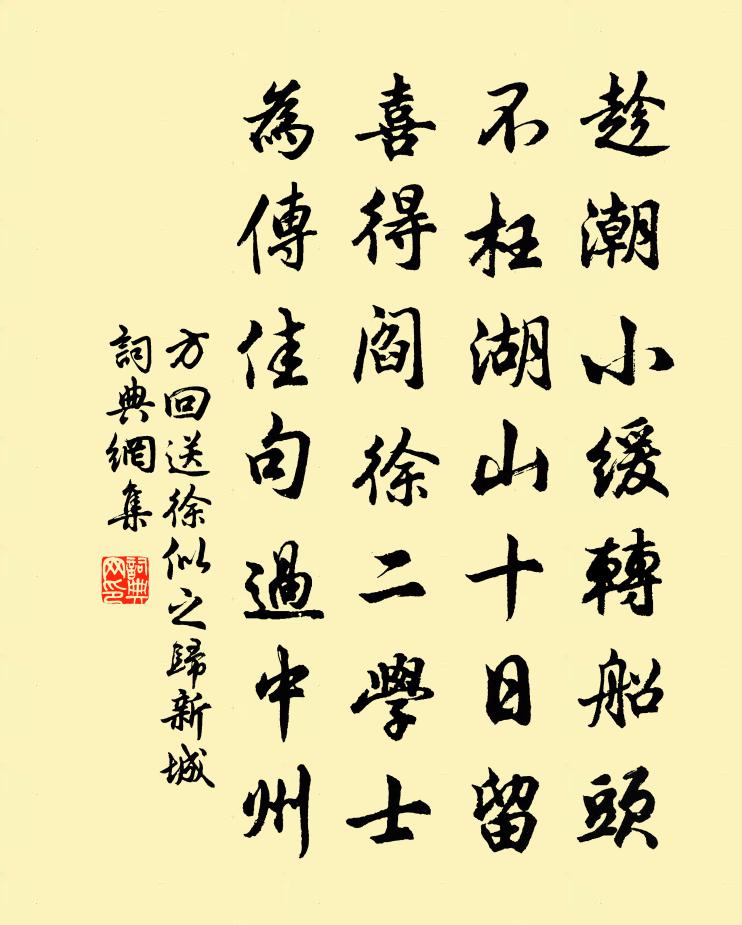 趁潮小緩轉船頭
不枉湖山十日留
喜得閻徐二學士
為傳佳句過中州
方回送徐似之歸新城
詞典網集
詞典网印